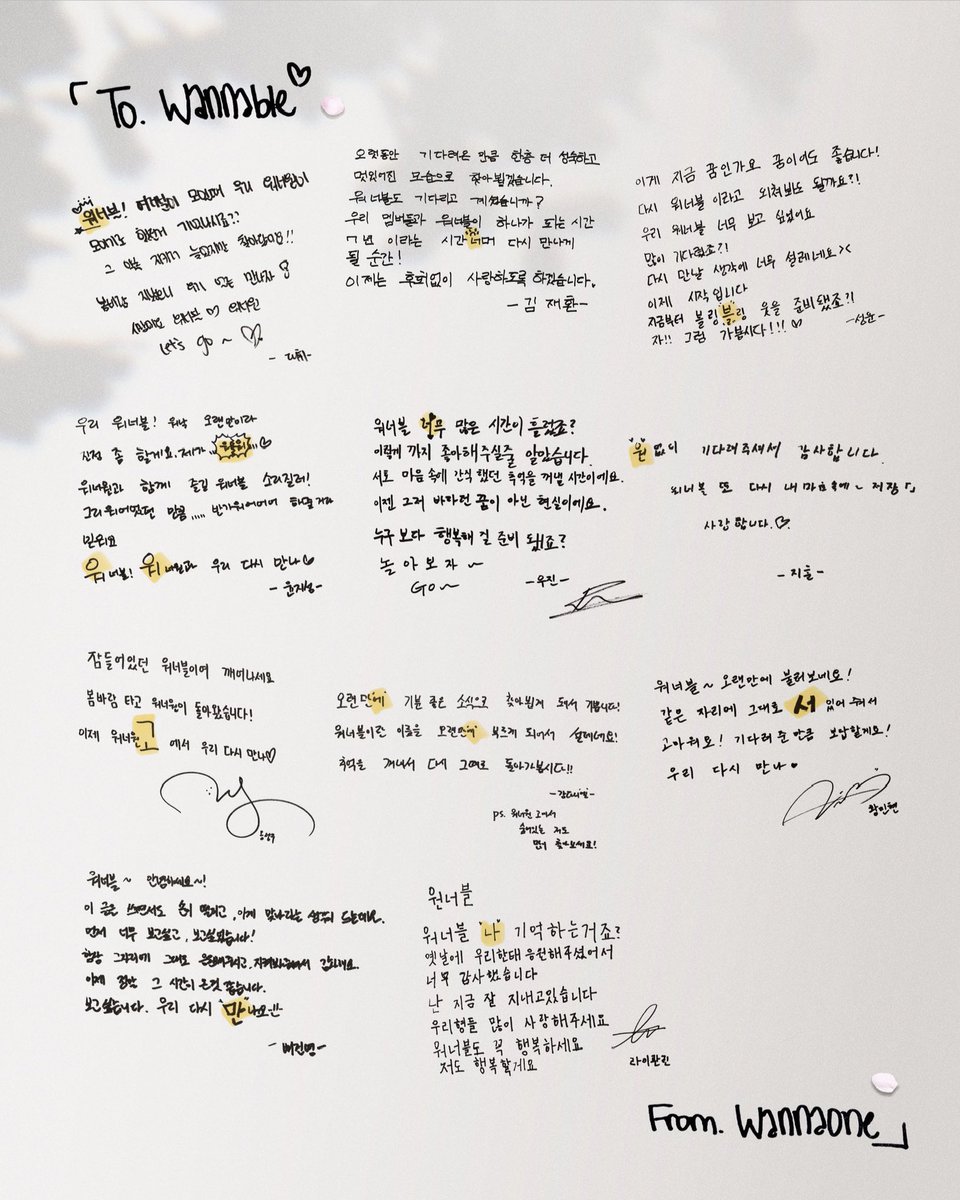 「To. Wannable♡
워너블!
지켜보니
Let's go ~ ♡
- 대휘 -
오랫동안 기다려온 만큼 한층 더 성숙하고
멋있어진 모습으로 찾아뵙겠습니다.
워너블도 기다리고 계셨습니까?
우리 멤버들과 워너블이 하나가 되는 시간
7년 이라는 시간 너머 다시 만나게
될 순간!
이제는 후회없이 사랑하도록 하겠습니다.
- 김재환 -
이게 지금 꿈인가요 꿈이어도 좋습니다!
다시 워너블 이라고 외쳐봐도 될까요?!
우리 워너블 너무 보고 싶었어요
많이 기다렸죠?!
다시 만날 생각에 너무 설레네요><
이제 시작입니다
지금부터 블링"블"링 웃을 준비됐죠?!
자!! 그럼 가봅시다!!! ♡
- 성운 -
우리 워너블! 워낙 오랜만이라
진정 좀 할게요. 제가
워너원과 함께 즐길 워너블 소리질러!
믿어요
워너블! 워너원과 우리 다시 만나♡
- 윤지성 -
워너블 너무 많은 시간이 흘렀죠?
이렇게 까지 좋아해주실줄 알았습니다.
서로 마음 속에 간직했던 추억을 꺼낼 시간이에요.
이젠 그저 바라던 꿈이 아닌 현실이에요.
누구보다 행복해 질 준비 됐죠?
놀아보자 ~
GO ~
- 우진 -
"원"없이 기다려주셔서 감사합니다.
워너블 또 다시 내 마음속에 ~ 저장『』
사랑합니다.♡
- 지훈 -
잠들어있던 워너블이여 깨어나세요
봄바람 타고 워너원이 돌아왔습니다!
이제 워너원"고"에서 우리 다시 만나♡
옹성우
오랜만에 기분 좋은 소식으로 찾아뵙게 돼서 기쁩니다!
워너블이란 이름을 오랜만에 부르게 되어서 설레네요!
추억을 꺼내서 다시 그때로 돌아가봅시다!!
- 강다니엘 -
ps. 워너원 고에서
숨어있는 저도
많이 찾아보세요!
워너블 ~ 오랜만에 불러보네요!
같은 자리에 그대로 "서" 있어 줘서
고마워요! 기다려 준 만큼 보답할게요!
우리 다시 만나♥
황민현
워너블 ~ 안녕하세요~!
이 글을 쓰면서도 손이 떨리고, 이게 맞나라는 생각이 드는데요.
먼저 너무 보고싶고, 보고싶었습니다!
항상 그자리에 그대로 응원해주시고, 지켜봐주셔서 감사해요.
이제 정말 그 시간이 온것 같습니다.
보고싶습니다. 우리 다시 "만"나요!!
- 배진영 -
원너블
워너블 "나" 기억하는거죠?
옛날에 우리한대 응원해주셨어서
너무 감사했습니다
난 지금 잘 지내고있습니다
우리형들 많이 사랑해주세요
워너블도 꼭 행복하세요
저도 행복할게요
라이관린
From. Wannaone」